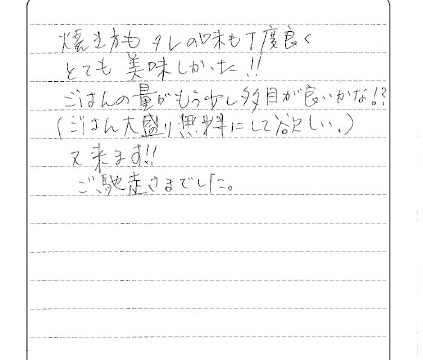 焼き方も タレの味も丁度良く
とても 美味しかった!!
ごはんの量がもう少し多目が良いかな!?
(ごはん大盛り無料にして欲しい。)
又来ます!!
ご馳走さまでした。